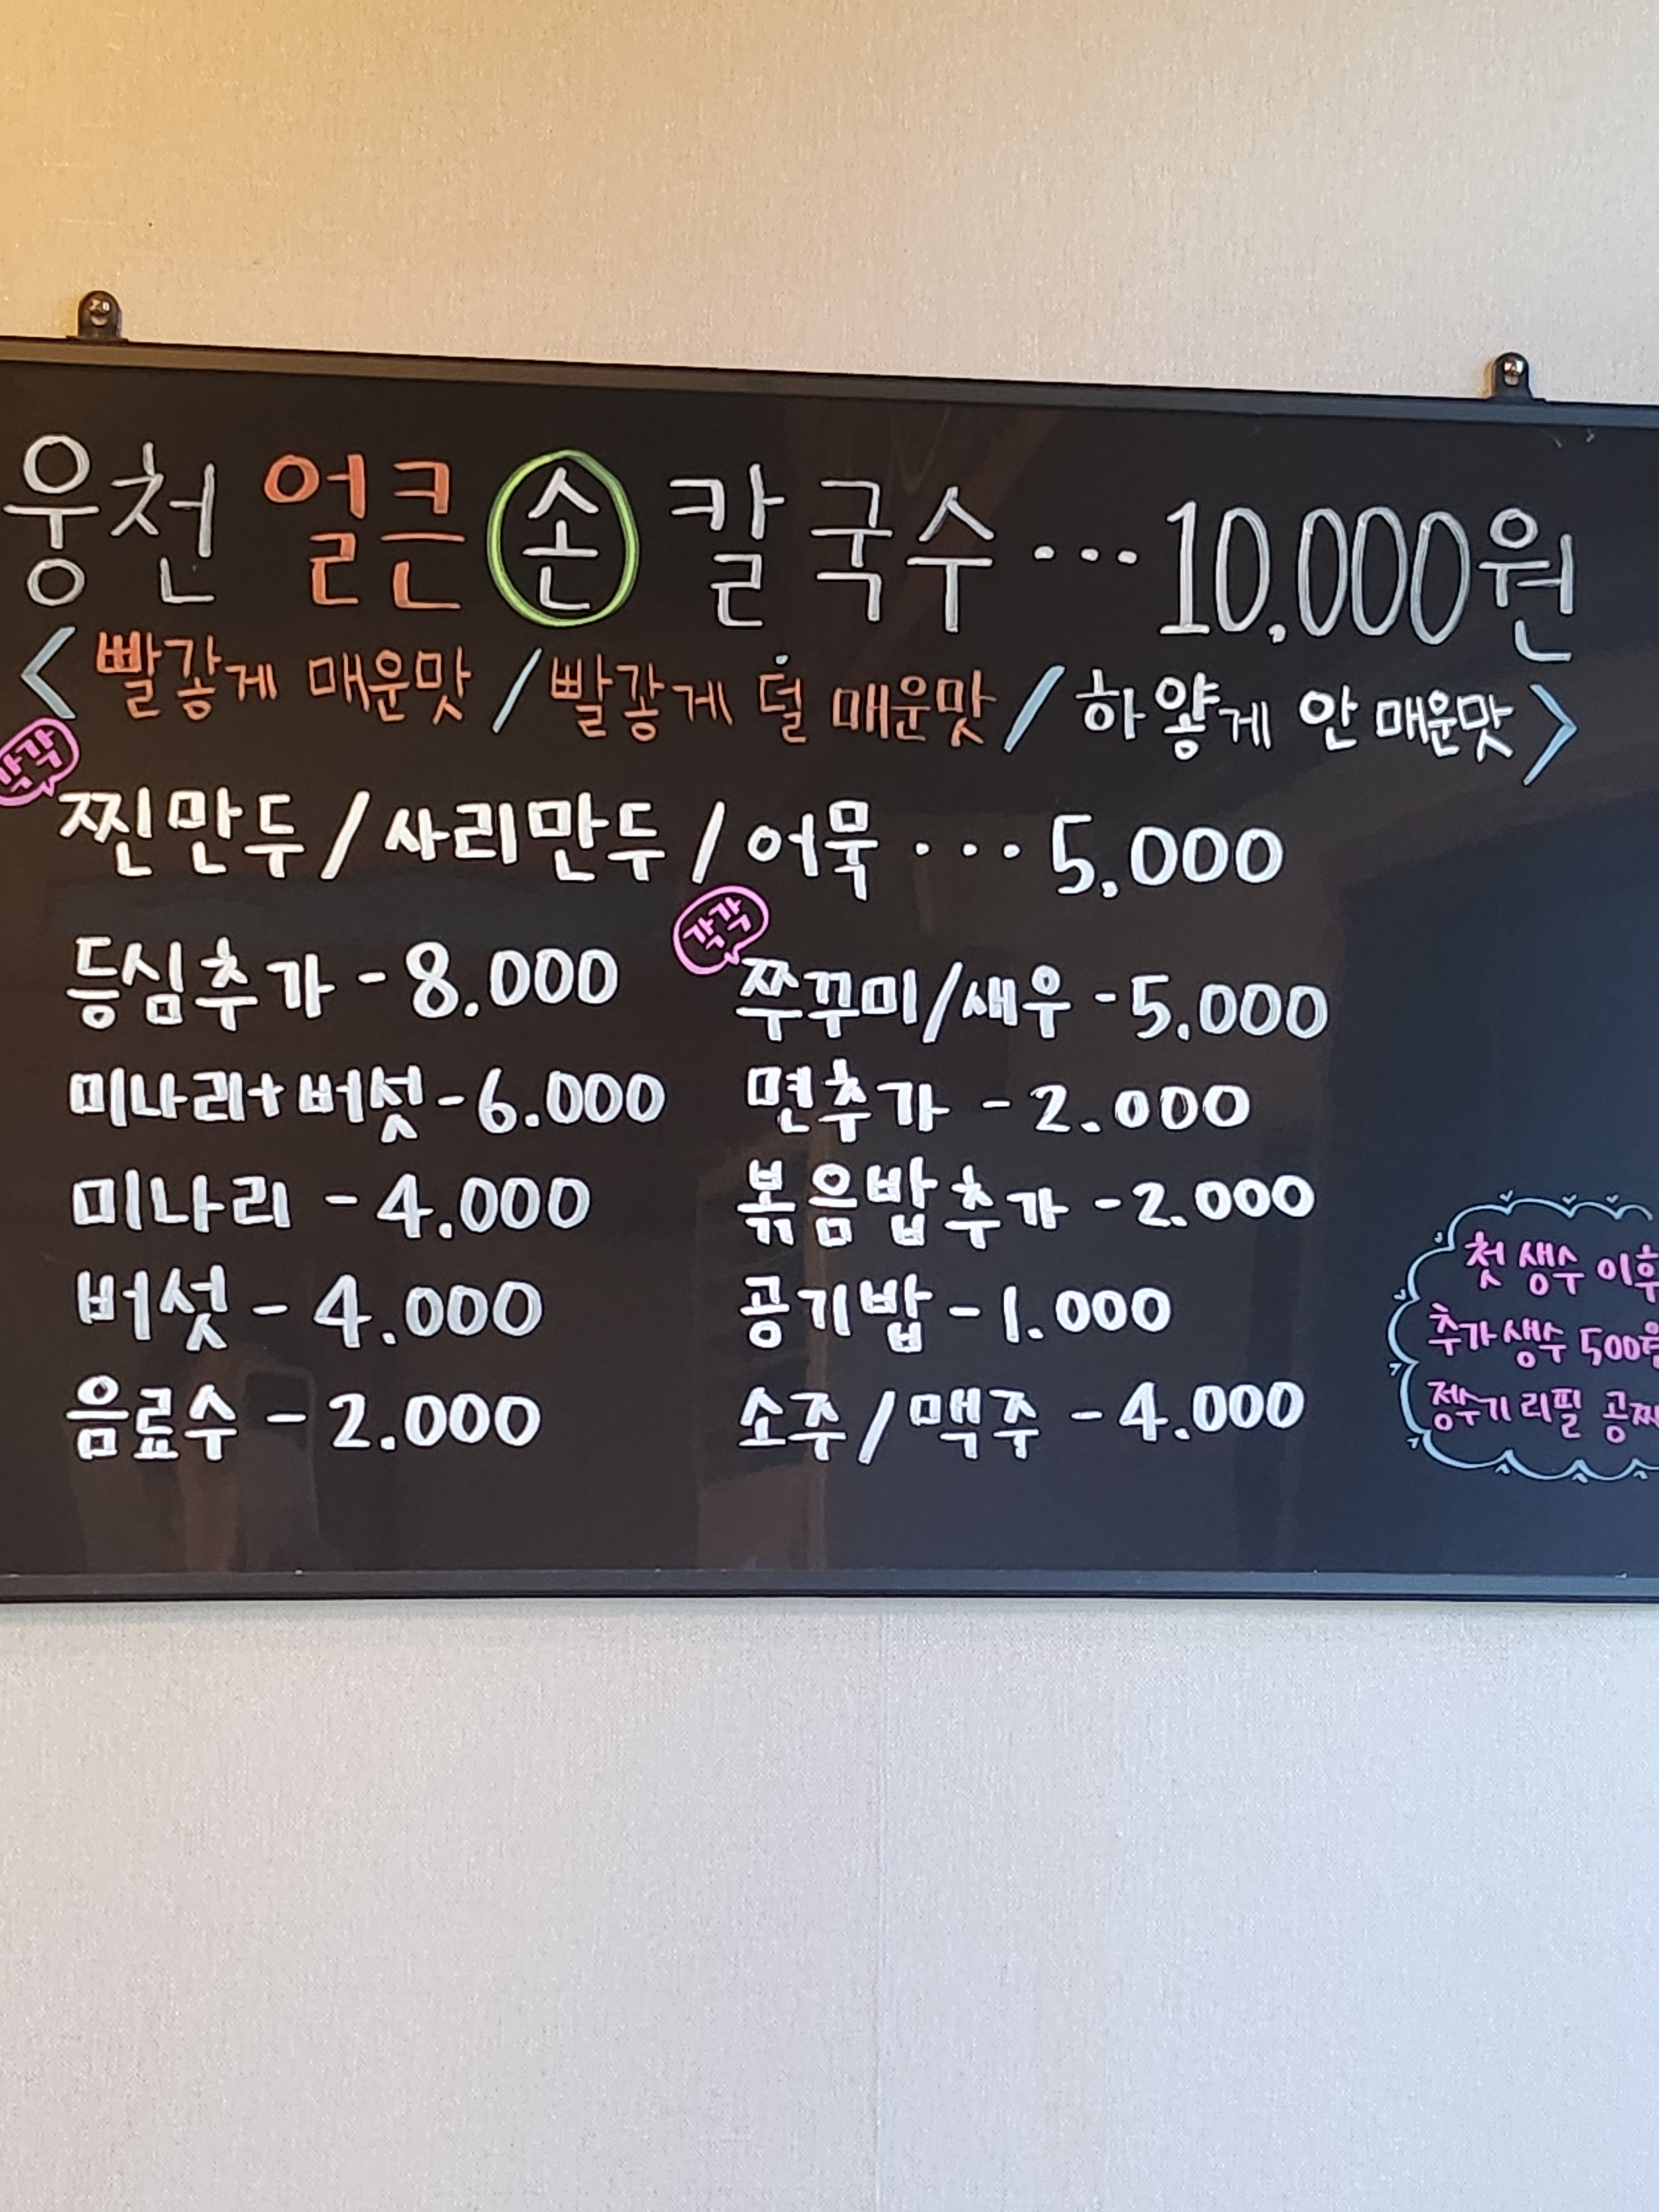 웅천 얼큰 손 칼국수 ··· 10,000원
< 빨갛게 매운맛 / 빨갛게 덜 매운맛 / 하얗게 안 매운맛 >
각각
찐만두 / 사리만두 / 어묵 ··· 5,000
등심추가 - 8.000
미나리+버섯 - 6.000
미나리 - 4.000
버섯 - 4.000
음료수 - 2.000
각각
쭈꾸미/새우 - 5.000
면추가 - 2.000
볶음밥추가 - 2.000
공기밥 - 1.000
소주/맥주 - 4.000
첫 생수 이후
추가생수 500원
정수기 리필 공짜